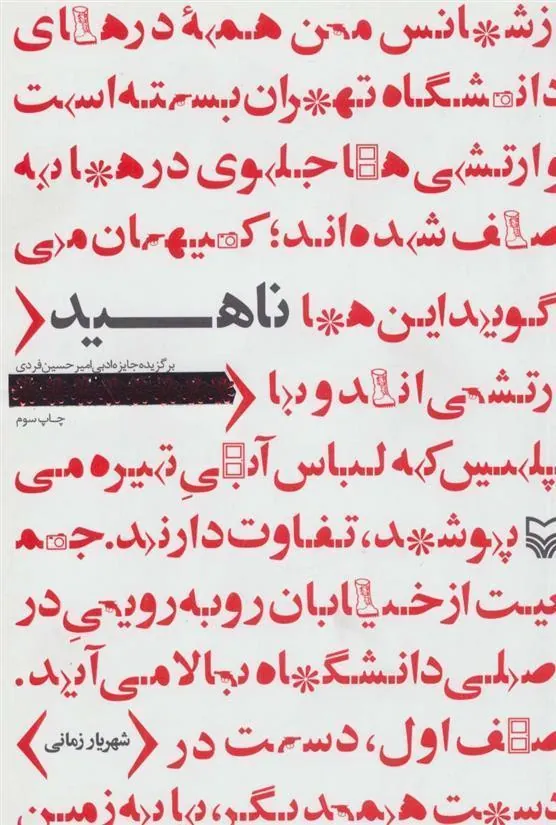 ازشانس من همهٔ درهای
دانشگاه تهران بسته است
و ارتشی ها جلوی درها به
صف شده اند؛ کیهان می
گوید این ها
ناهید
برگزیده جایزه ادبی امیرحسین فردی
ارتشی اند و با
چاپ سوم
پلیس که لباس آبیِ تیره می
پوشد، تفاوت دارند. جم
عیت از خیابان روبه رویی در
اصلی دانشگاه بالا می آید.
صف اول، دست در
شهریار زمانی
دست همدیگر، پا به زمین